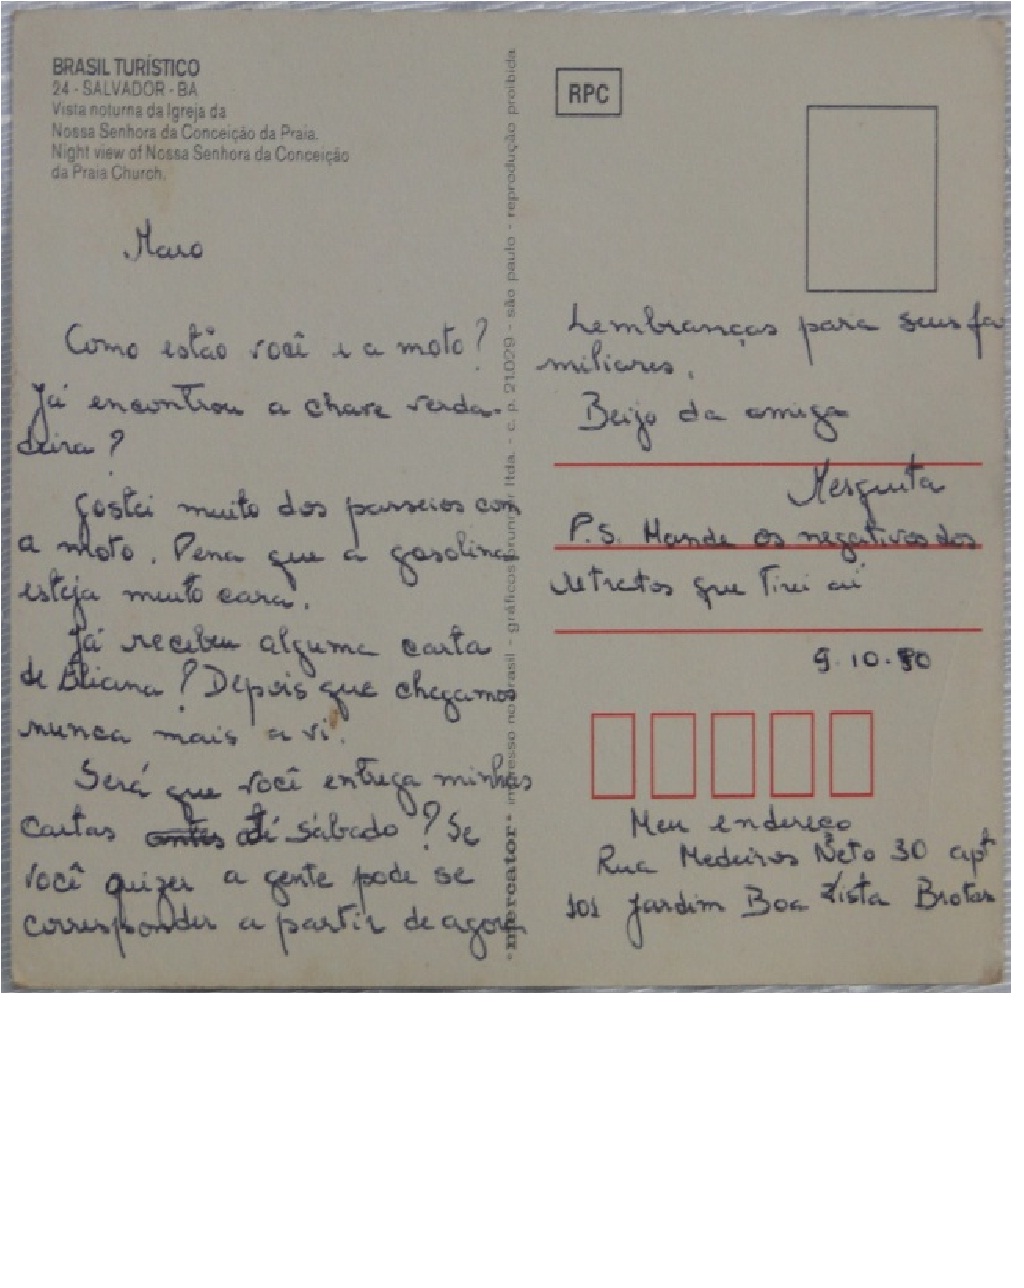 BRASIL TURÍSTICO
24 - SALVADOR - BA
Vista noturna da Igreja da
Nossa Senhora da Conceição da Praia.
Night view of Nossa Senhora da Conceição
da Praia Church.
Maro
Como estão você e a moto?
Já encontrou a chave verda-
deira?
Gostei muito dos passeios com
a moto. Pena que a gasolina
esteja muito cara.
Já recebeu alguma carta
de Eliana? Depois que chegamos
nunca mais a vi.
Será que você entrega minhas
cartas antes até sábado? Se
você quizer a gente pode se
corresponder a partir de agora
"mercator" impresso no brasil - gráficos brunner ltda. - c. p. 21.029 - são paulo - reprodução proibida
RPC
Lembranças para seus fa
miliares.
Beijo da amiga
Mesquita
P.S. Mande os negativos dos
retratos que tirei aí
9.10.80
Meu endereço
Rua Medeiros Neto 30 apt
101 Jardim Boa Vista Brotas